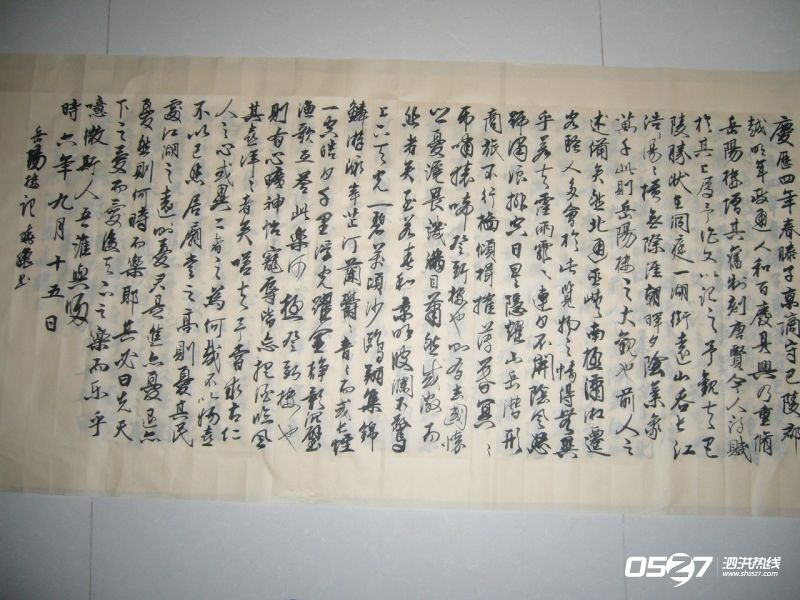 慶歷四年春滕子京謫守巴陵郡
越明年政通人和百廢具興乃重脩
岳陽樓增其舊制刻唐賢今人詩賦
於其上屬予作文以記之予觀夫巴
陵勝狀在洞庭一湖銜遠山吞長江
浩浩湯湯橫無際涯朝暉夕陰氣象
萬千此則岳陽樓之大觀也前人之
述備矣然北通巫峽南極瀟湘遷
客騷人多會於此覽物之情得無異
乎若夫霪雨霏霏連月不開陰風怒
號濁浪排空日星隱耀山岳潛形
商旅不行檣傾楫摧薄暮冥冥
虎嘯猿啼登斯樓也則有去國懷
鄉憂讒畏譏滿目蕭然感激而
悲者矣至若春和景明波瀾不驚
上下天光一碧萬頃沙鷗翔集錦
鱗游泳岸芷汀蘭鬱鬱青青而或長煙
一空皓月千里浮光躍金靜影沉璧
漁歌互答此樂何極登斯樓也
則有心曠神怡寵辱皆忘把酒臨風
其喜洋洋者矣嗟夫予嘗求古仁
人之心或異二者之為何哉不以物喜
不以己悲居廟堂之高則憂其民
處江湖之遠則憂其君是進亦憂退亦
憂然則何時而樂耶其必曰先天
下之憂而憂後天下之樂而樂乎
噫微斯人吾誰與歸
時六年九月十五日
岳陽樓記
0527 泗洪热线
www.sh0527.com